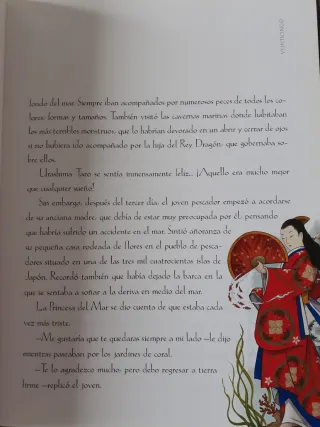 fondo del mar. Siempre iban acompañados por numerosos peces de todos los co-
lores, formas y tamaños. También visitó las cavernas marinas donde habitaban
los más terribles monstruos, que lo habrían devorado en un abrir y cerrar de ojos
si no hubiera ido acompañado por la hija del Rey Dragón, que gobernaba so-
bre ellos.
Urashima Taro se sentía inmensamente feliz... ¡Aquello era mucho mejor
que cualquier sueño!
Sin embargo, después del tercer día, el joven pescador empezó a acordarse
de su anciana madre, que debía de estar muy preocupada por él, pensando
que habría sufrido un accidente en el mar. Sintió añoranza de
su pequeña casa rodeada de flores en el pueblo de pes-
cadores situado en una de las tres mil cuatrocientas islas de
Japón. Recordó también que había dejado la barca en la
que se sentaba a soñar a la deriva en medio del mar.
La Princesa del Mar se dio cuenta de que estaba cada
vez más triste.
—Me gustaría que te quedaras siempre a mi lado —le dijo
mientras paseaban por los jardines de coral.
—Te lo agradezco mucho, pero debo regresar a tierra
firme —replicó el joven.